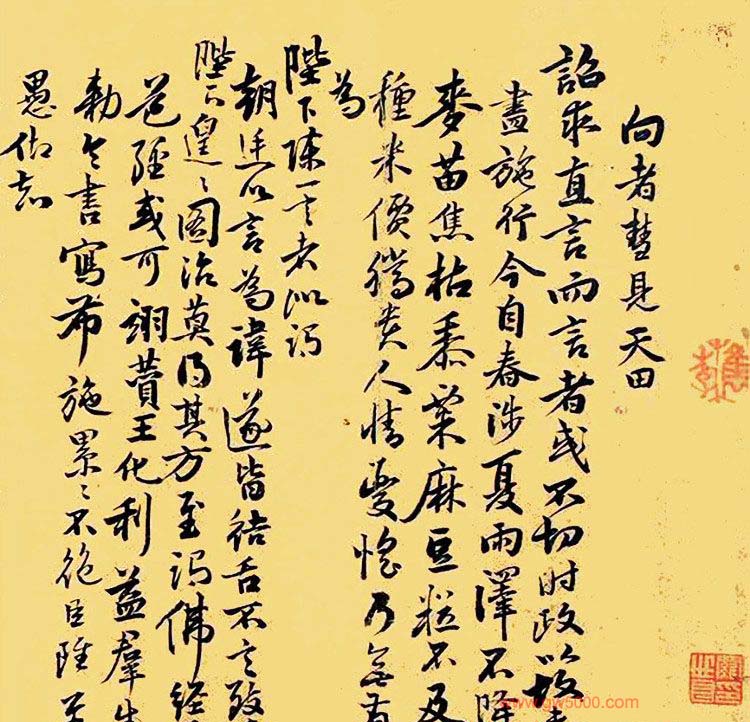 向者彗見天田
詔求直言而言者或不切时政以故
盡施行今自春涉夏雨澤不降
麥苗焦枯黍粟麻豆粒不及
種米價騰貴人情憂惶乃無有
為
陛下陳一言者似謂
朝廷以言為諱遂皆結舌不言致
陛下遑々圖治莫得其方至謂佛経
経或可翊贊王化利益羣生
勅令書寫布施累々不絕臣雖至
愚
www.gw5000.com